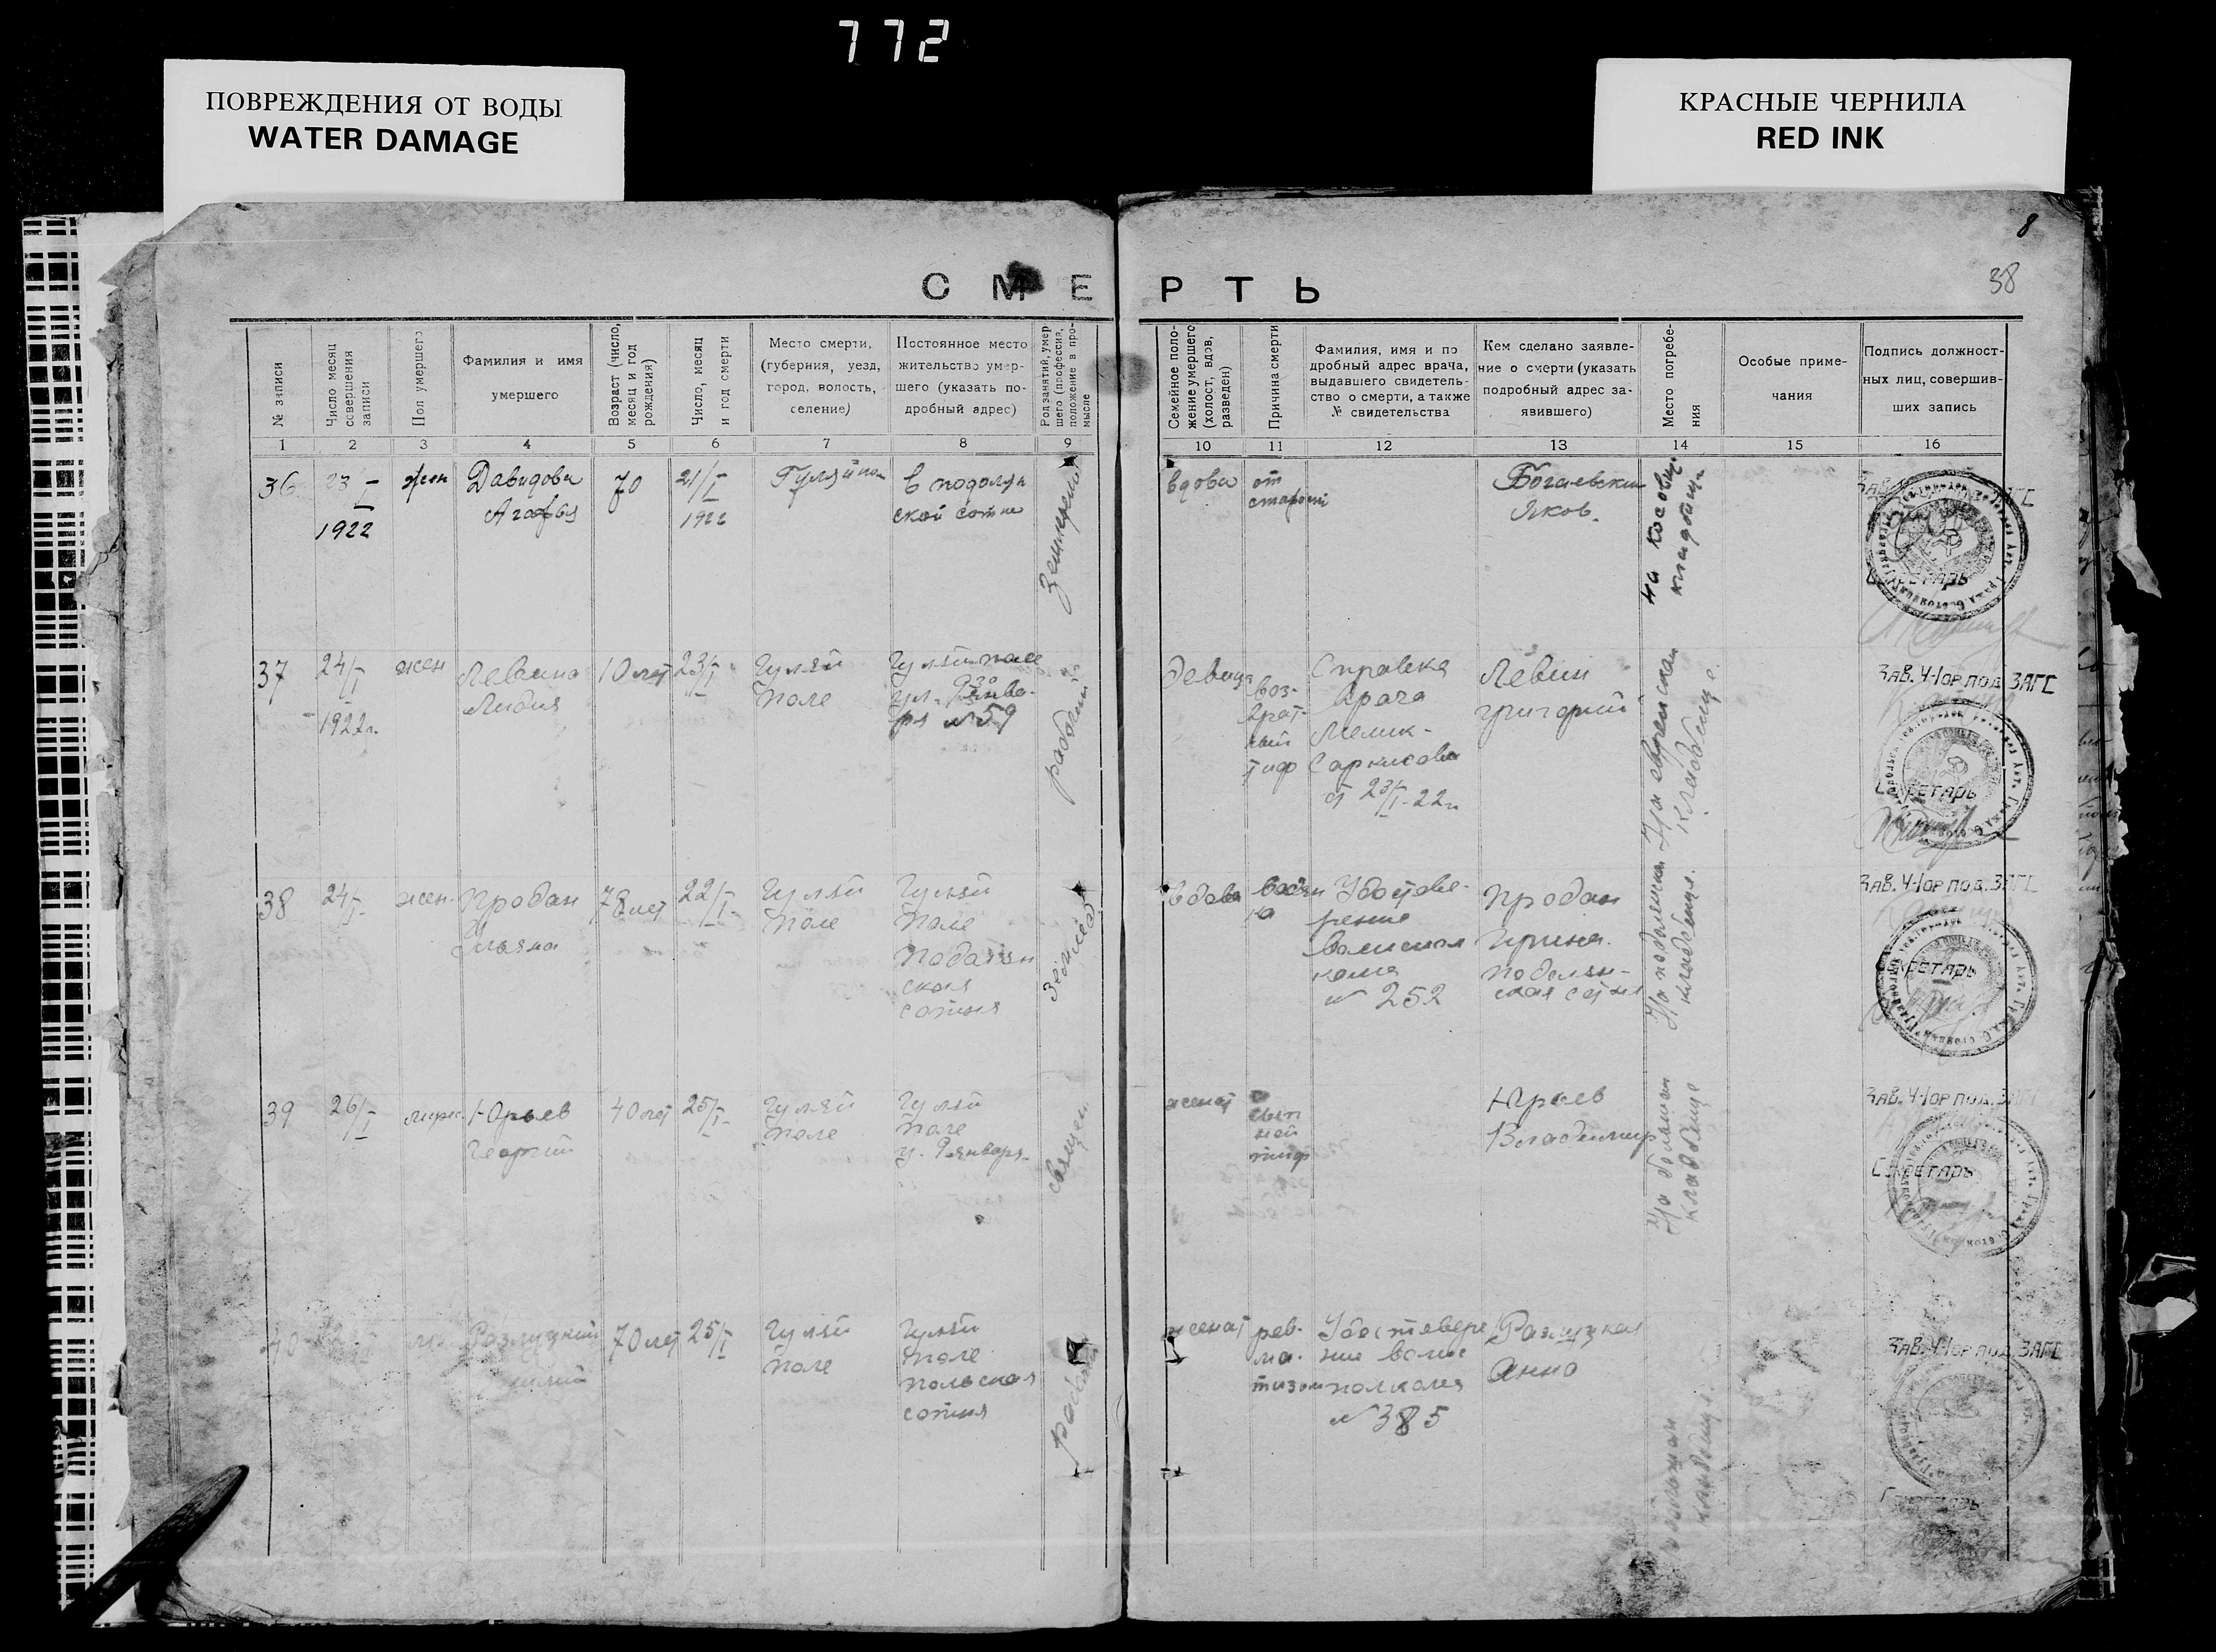 772
ПОВРЕЖДЕНИЯ ОТ ВОДЫ
WATER DAMAGE
КРАСНЫЕ ЧЕРНИЛА
RED INK
8
38
СМЕРТЬ
№ записи
Число месяц совершения записи
Пол умершего
Фамилия и имя
умершего
Возраст (число, месяц и год рождения)
Число, месяц и год смерти
Место смерти,
(губерния, уезд,
город, волость,
селение)
Постоянное место
жительство умер-
шего (указать по-
дробный адрес)
Род занятий, умер-
шего (профессия,
положение в про-
мысле
Семейное поло-
жение умершего
(холост, вдов,
разведен)
Причина смерти
Фамилия, имя и по
дробный адрес врача,
выдавшего свидетель-
ство о смерти, а также
№ свидетельства
Кем сделано заявле-
ние о смерти (указать
подробный адрес за-
явившего)
Место погребе-
ния
Особые приме-
чания
Подпись должност-
ных лиц, совершив-
ших запись
1 2 3 4 5 6 7 8 9 10 11 12 13 14 15 16
36
23/I
1922
жен
Давидова
Агафья
70
21/I
1922
Гуляйпол
в подолян
ской сотне
вдова
от
старости
Богаевский
Яков.
на
кладбищ
Секретарь
37
24/I
1922г.
жен
Левина
Лидия
10 лет
23/I
Гуляй
Поле
Гуляйполе
ул. 9го Янва-
ря №59
рабочий
девица
воз-
врат-
ный
тиф
Справка
врача
Мелик-
Саркисова
от 23/I-22г.
Левин
Григорий
На еврейском
кладбище.
Зав. Ч-Гор под ЗАГС
Секретарь
38
24/I
жен.
Продан
Ульяна
78 лет
22/I
Гуляй
Поле
Гуляй
Поле
Подолян
ская
сотня
вдова
Удостове-
рение
волиспол
кома
№ 252
Продан
Ирина.
подолян-
ская сотня
На подолянском
кладбище.
Зав. Ч-Гор под. ЗАГС
Секретарь
39
26/I
Юрьев
Георгий
40 лет
25/I
Гуляй
Поле
Гуляй
Поле
у. 9 января.
священ.
женат
сып
ной
тиф
Юрьев
Владимир
На большом
кладбище
Зав. Ч-Гор под. ЗАГС
Секретарь
40
Разлуцкий
70 лет
25/I
Гуляй
Поле
Гуляй
Поле
польская
сотня
женат
рев-
ма-
тизом
Удостовере
ние волис
полкома
№ 385
Разлуцкая
Анна
кладбище
Зав. Ч-Гор под. ЗАГС
Секретарь